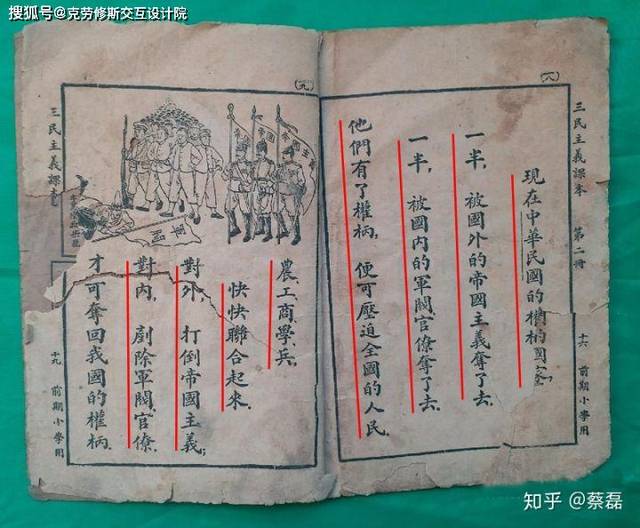 搜狐号@克劳修斯交互设计院
(八)
三民主義課本 第二冊
十六 前期小學用
現在中華民國的權柄
一半，被國外的帝國主義奪了去。
一半，被國內的軍閥，官僚奪了去。
他們有了權柄，便可壓迫全國的人民。
(九)
農，工，商，學，兵，
快快聯合起來。
對外，打倒帝國主義；
對內，剷除軍閥，官僚，
才可奪回我國的權柄。
軍閥
三民主義課
十九 前期小學用
知乎 @蔡磊